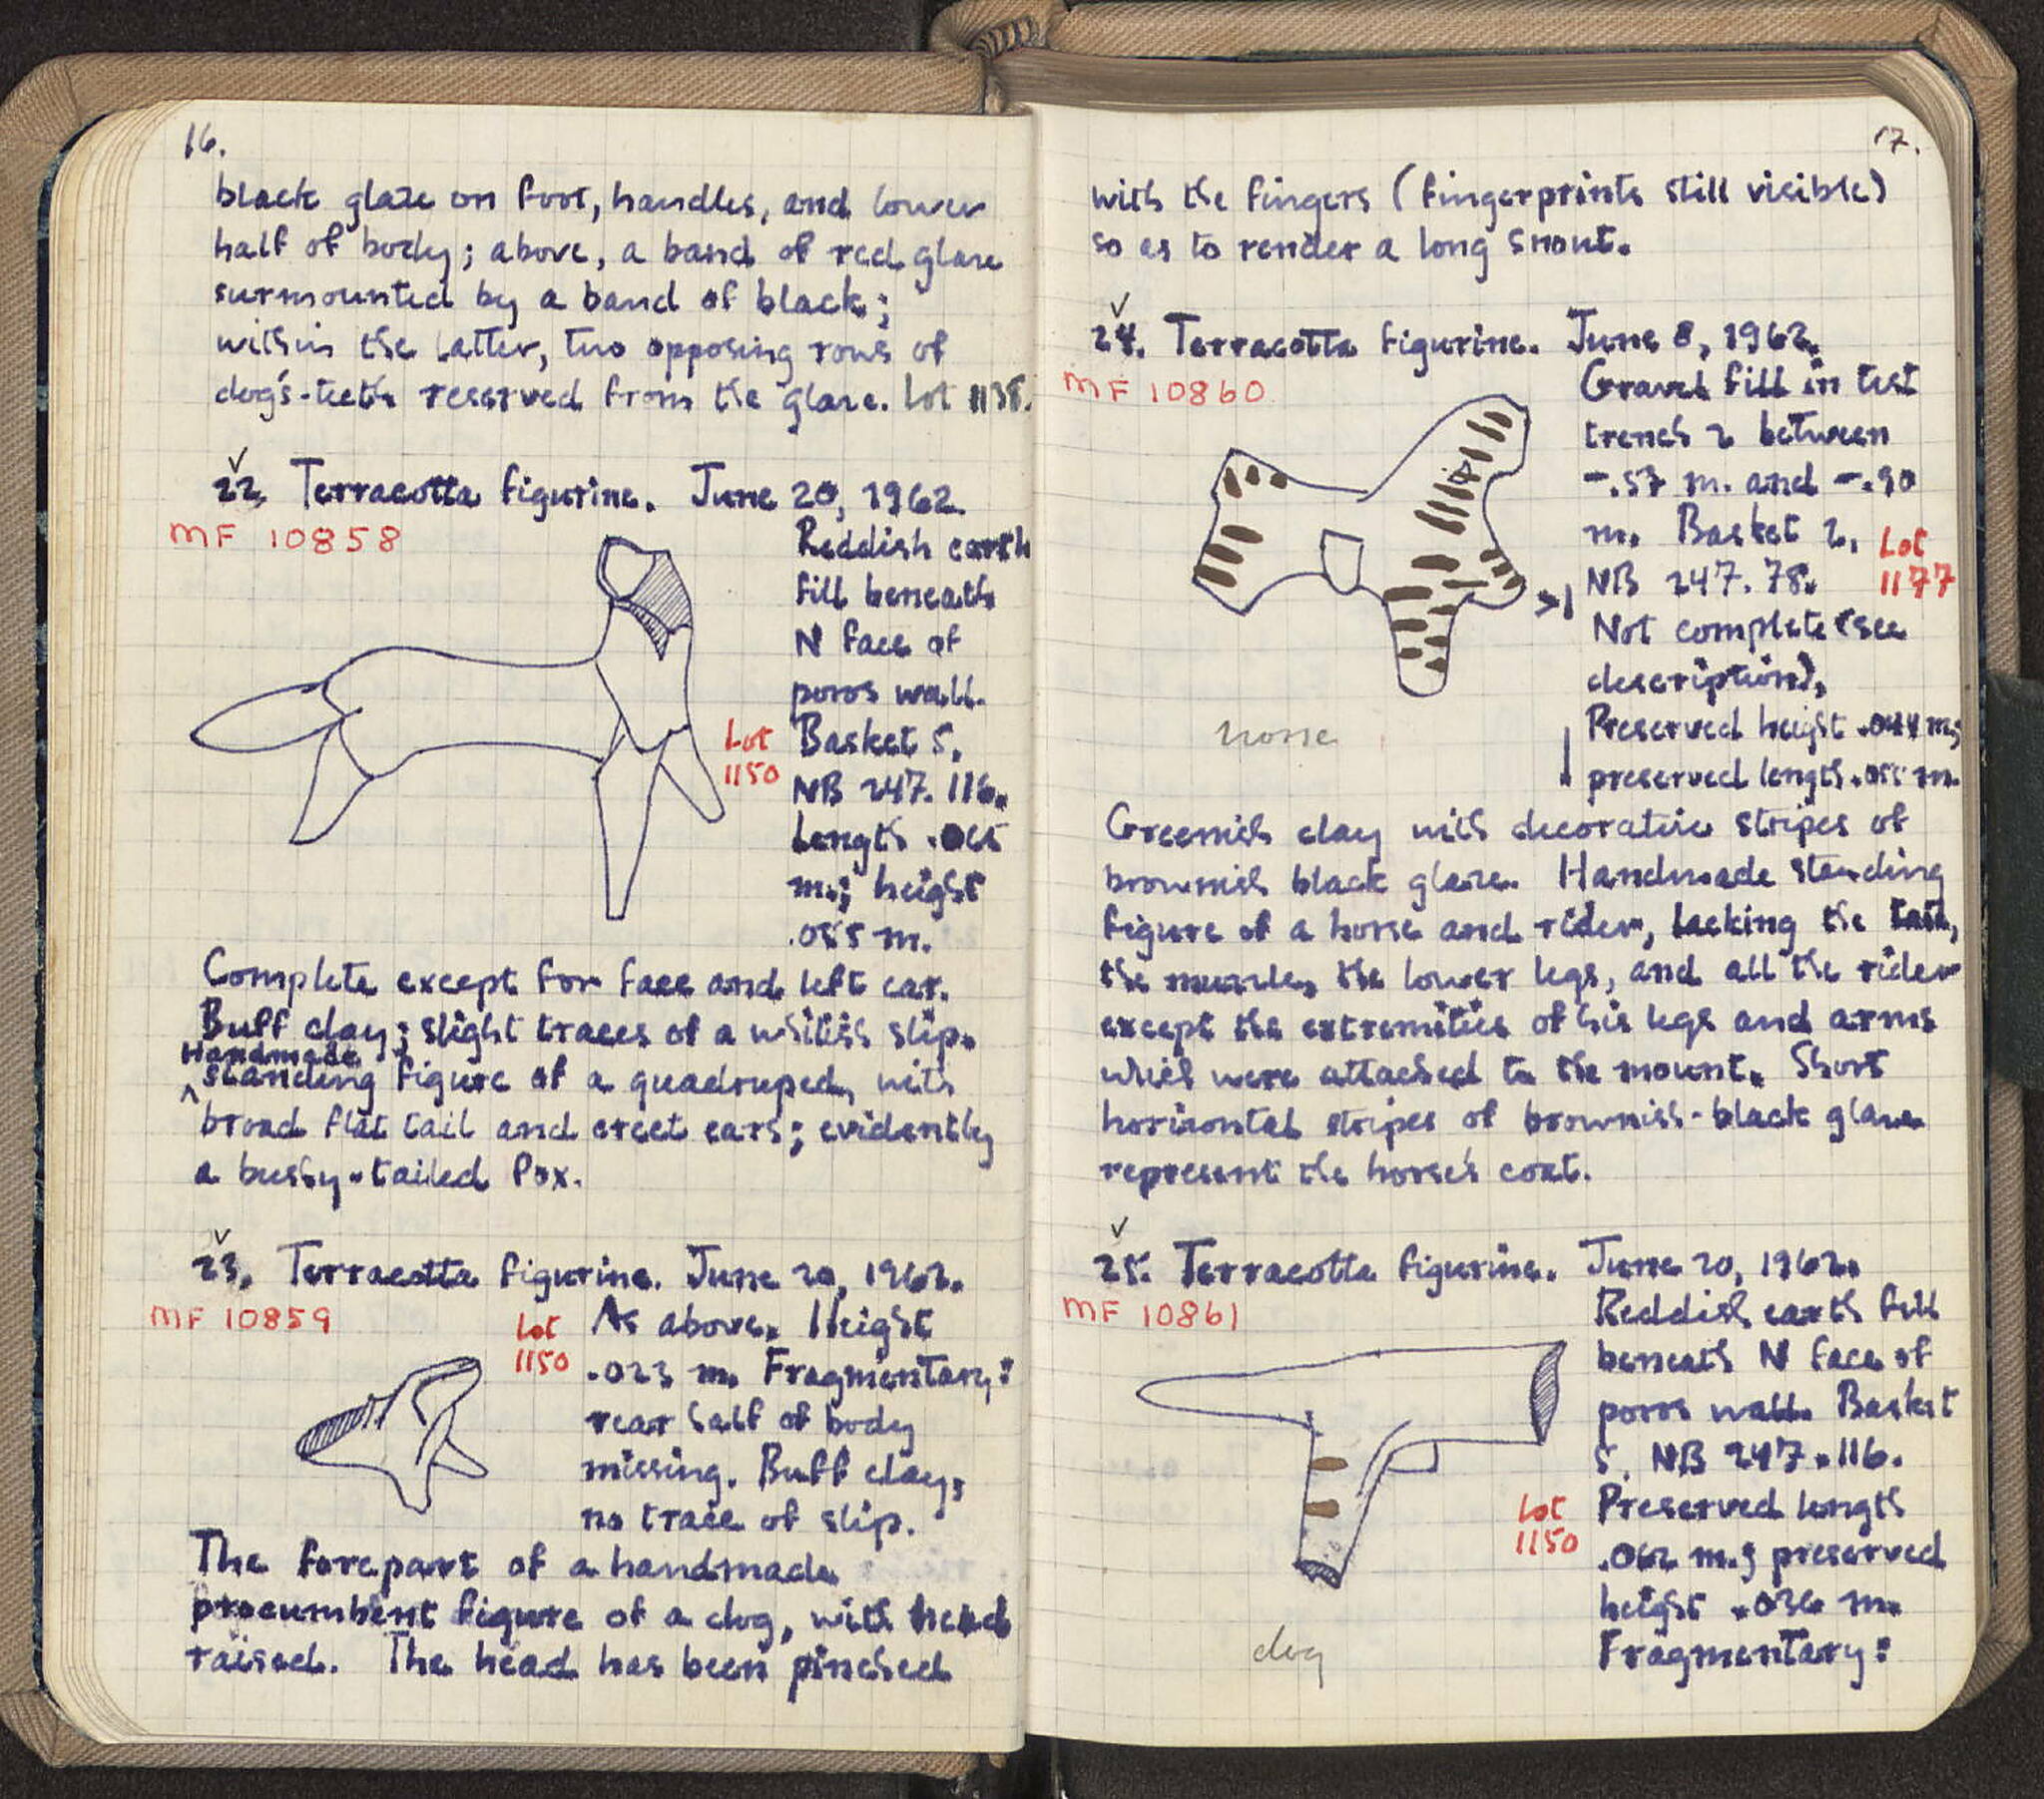 16.
black glaze on foot, handles, and lower
half of body; above, a band of red glaze
surmounted by a band of black;
within the latter, two opposing rows of
dog's-teeth reserved from the glaze. Lot 1138.
✓
22. Terracotta figurine. June 20, 1962.
MF 10858
Reddish earth
fill beneath
N face of
poros wall.
Lot
1150
Basket 5.
NB 247. 116.
Length .065
m.; height
.055 m.
Complete except for face and left ear.
Buff clay; slight traces of a whitish slip.
Handmade
^ standing figure of a quadruped, with
broad flat tail and erect ears; evidently
a bushy-tailed fox.
✓
23. Terracotta figurine. June 20, 1962.
MF 10859
Lot
1150
As above. Height
.023 m. Fragmentary:
rear half of body
missing. Buff clay,
no trace of slip.
The forepart of a handmade
procumbent figure of a dog, with head
raised. The head has been pinched
17.
with the fingers (fingerprints still visible)
so as to render a long snout.
✓
24. Terracotta figurine. June 8, 1962.
MF 10860
Gravel fill in test
trench 2 between
-.57 m. and -.90
m. Basket 2.
NB 247. 78.
Lot
1177
Not complete (see
description).
Preserved height .044 m;
preserved length .055 m.
horse
Greenish clay with decorative stripes of
brownish black glaze. Handmade standing
figure of a horse and rider, lacking the tail,
the muzzle, the lower legs, and all the rider
except the extremities of his legs and arms
which were attached to the mount. Short
horizontal stripes of brownish-black glaze
represent the horse's coat.
✓
25. Terracotta figurine. June 20, 1962.
MF 10861
Reddish earth fill
beneath N face of
poros wall. Basket
5. NB 247.116.
Lot
1150
Preserved length
.062 m.; preserved
height .036 m.
Fragmentary:
dog